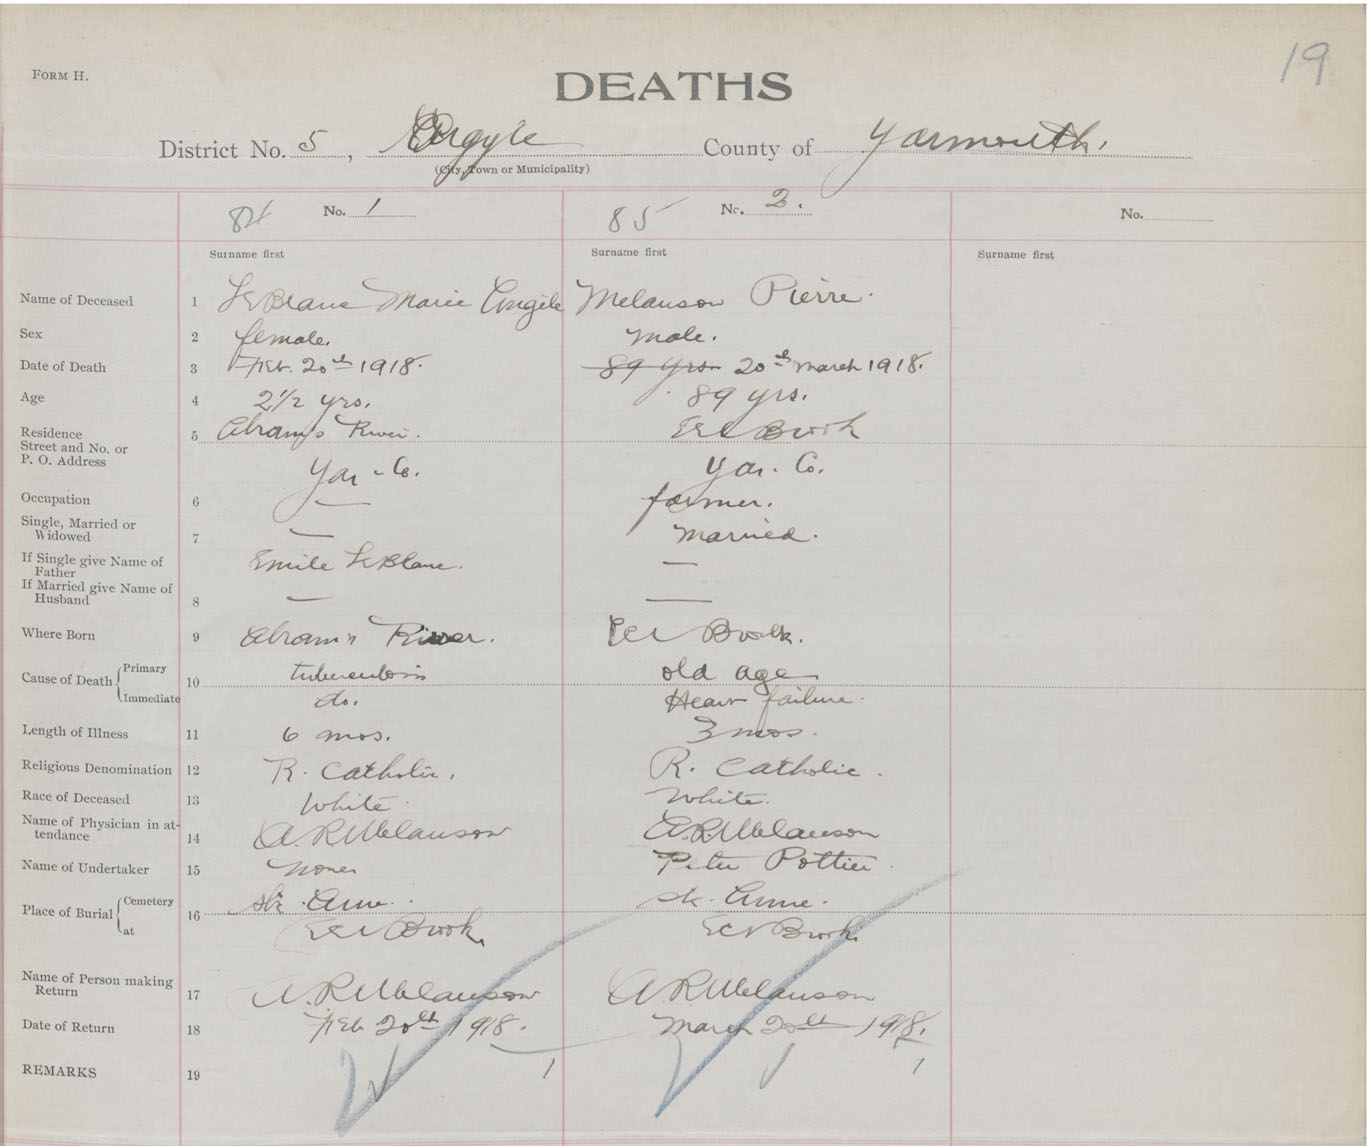 19
FORM H.
DEATHS
District No. 5, Argyle County of Yarmouth.
(City, Town or Municipality)
84 No. 1 85 No. 2. No.
Surname first Surname first Surname first
Name of Deceased 1 LeBlanc Marie Angele Melanson Pierre.
Sex 2 female. male.
Date of Death 3 Feb. 20th 1918. 89 yrs. 20th March 1918.
Age 4 2 1/2 yrs. 89 yrs.
Residence
Street and No. or
P. O. Address 5 Abram's River. Eel Brook
Yar - Co. Yar. Co.
Occupation 6 — farmer.
Single, Married or
Widowed 7 — Married.
If Single give Name of
Father Emile LeBlanc. —
If Married give Name of
Husband 8 — —
Where Born 9 Abram's River. Eel Brook.
Cause of Death Primary 10 tuberculosis old age
Immediate do. Heart failure.
Length of Illness 11 6 mos. 3 mos.
Religious Denomination 12 R. Catholic. R. Catholic.
Race of Deceased 13 White. White.
Name of Physician in at-
tendance 14 A.R. Melanson A.R. Melanson
Name of Undertaker 15 None Peter Pottier.
Place of Burial Cemetery 16 Ste. Anne. St. Anne.
at Eel Brook. Eel Brook.
Name of Person making
Return 17 A.R. Melanson A.R. Melanson
Date of Return 18 Feb 20th 1918. March 20th 1918.
REMARKS 19 1 1